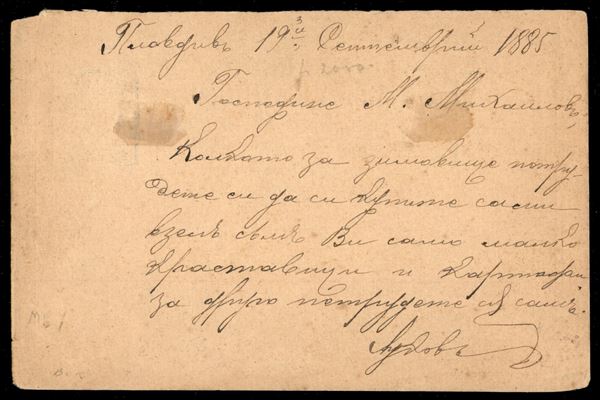 Пловдивъ 19 3/и Септемврий 1885
Господине М. Михаиловъ,
Колкото за зимовище потру-
дете си да си купите сами
взелъ съмъ Ви само малко
краставици и картофи
за друго потрудете ся самъ.